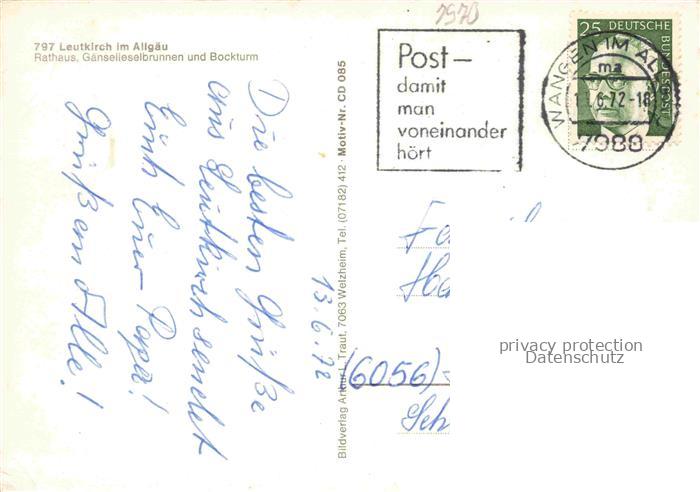 1970
797 Leutkirch im Allgäu
Rathaus, Gänselieselbrunnen und Bockturm
Die besten Grüße
aus Leutkirch sendet
Euch Euer Papa!
Grüßen Alle!
13.6.72
Bildverlag Arthur L. Traut, 7063 Welzheim, Tel. (07182) 412 · Motiv-Nr. CD 085
Post –
damit
man
voneinander
hört
25 DEUTSCHE BUNDESPOST
WANGEN IM
ma
6.72-18
7988
Fa
Ha
(6056)
privacy protection
Datenschutz